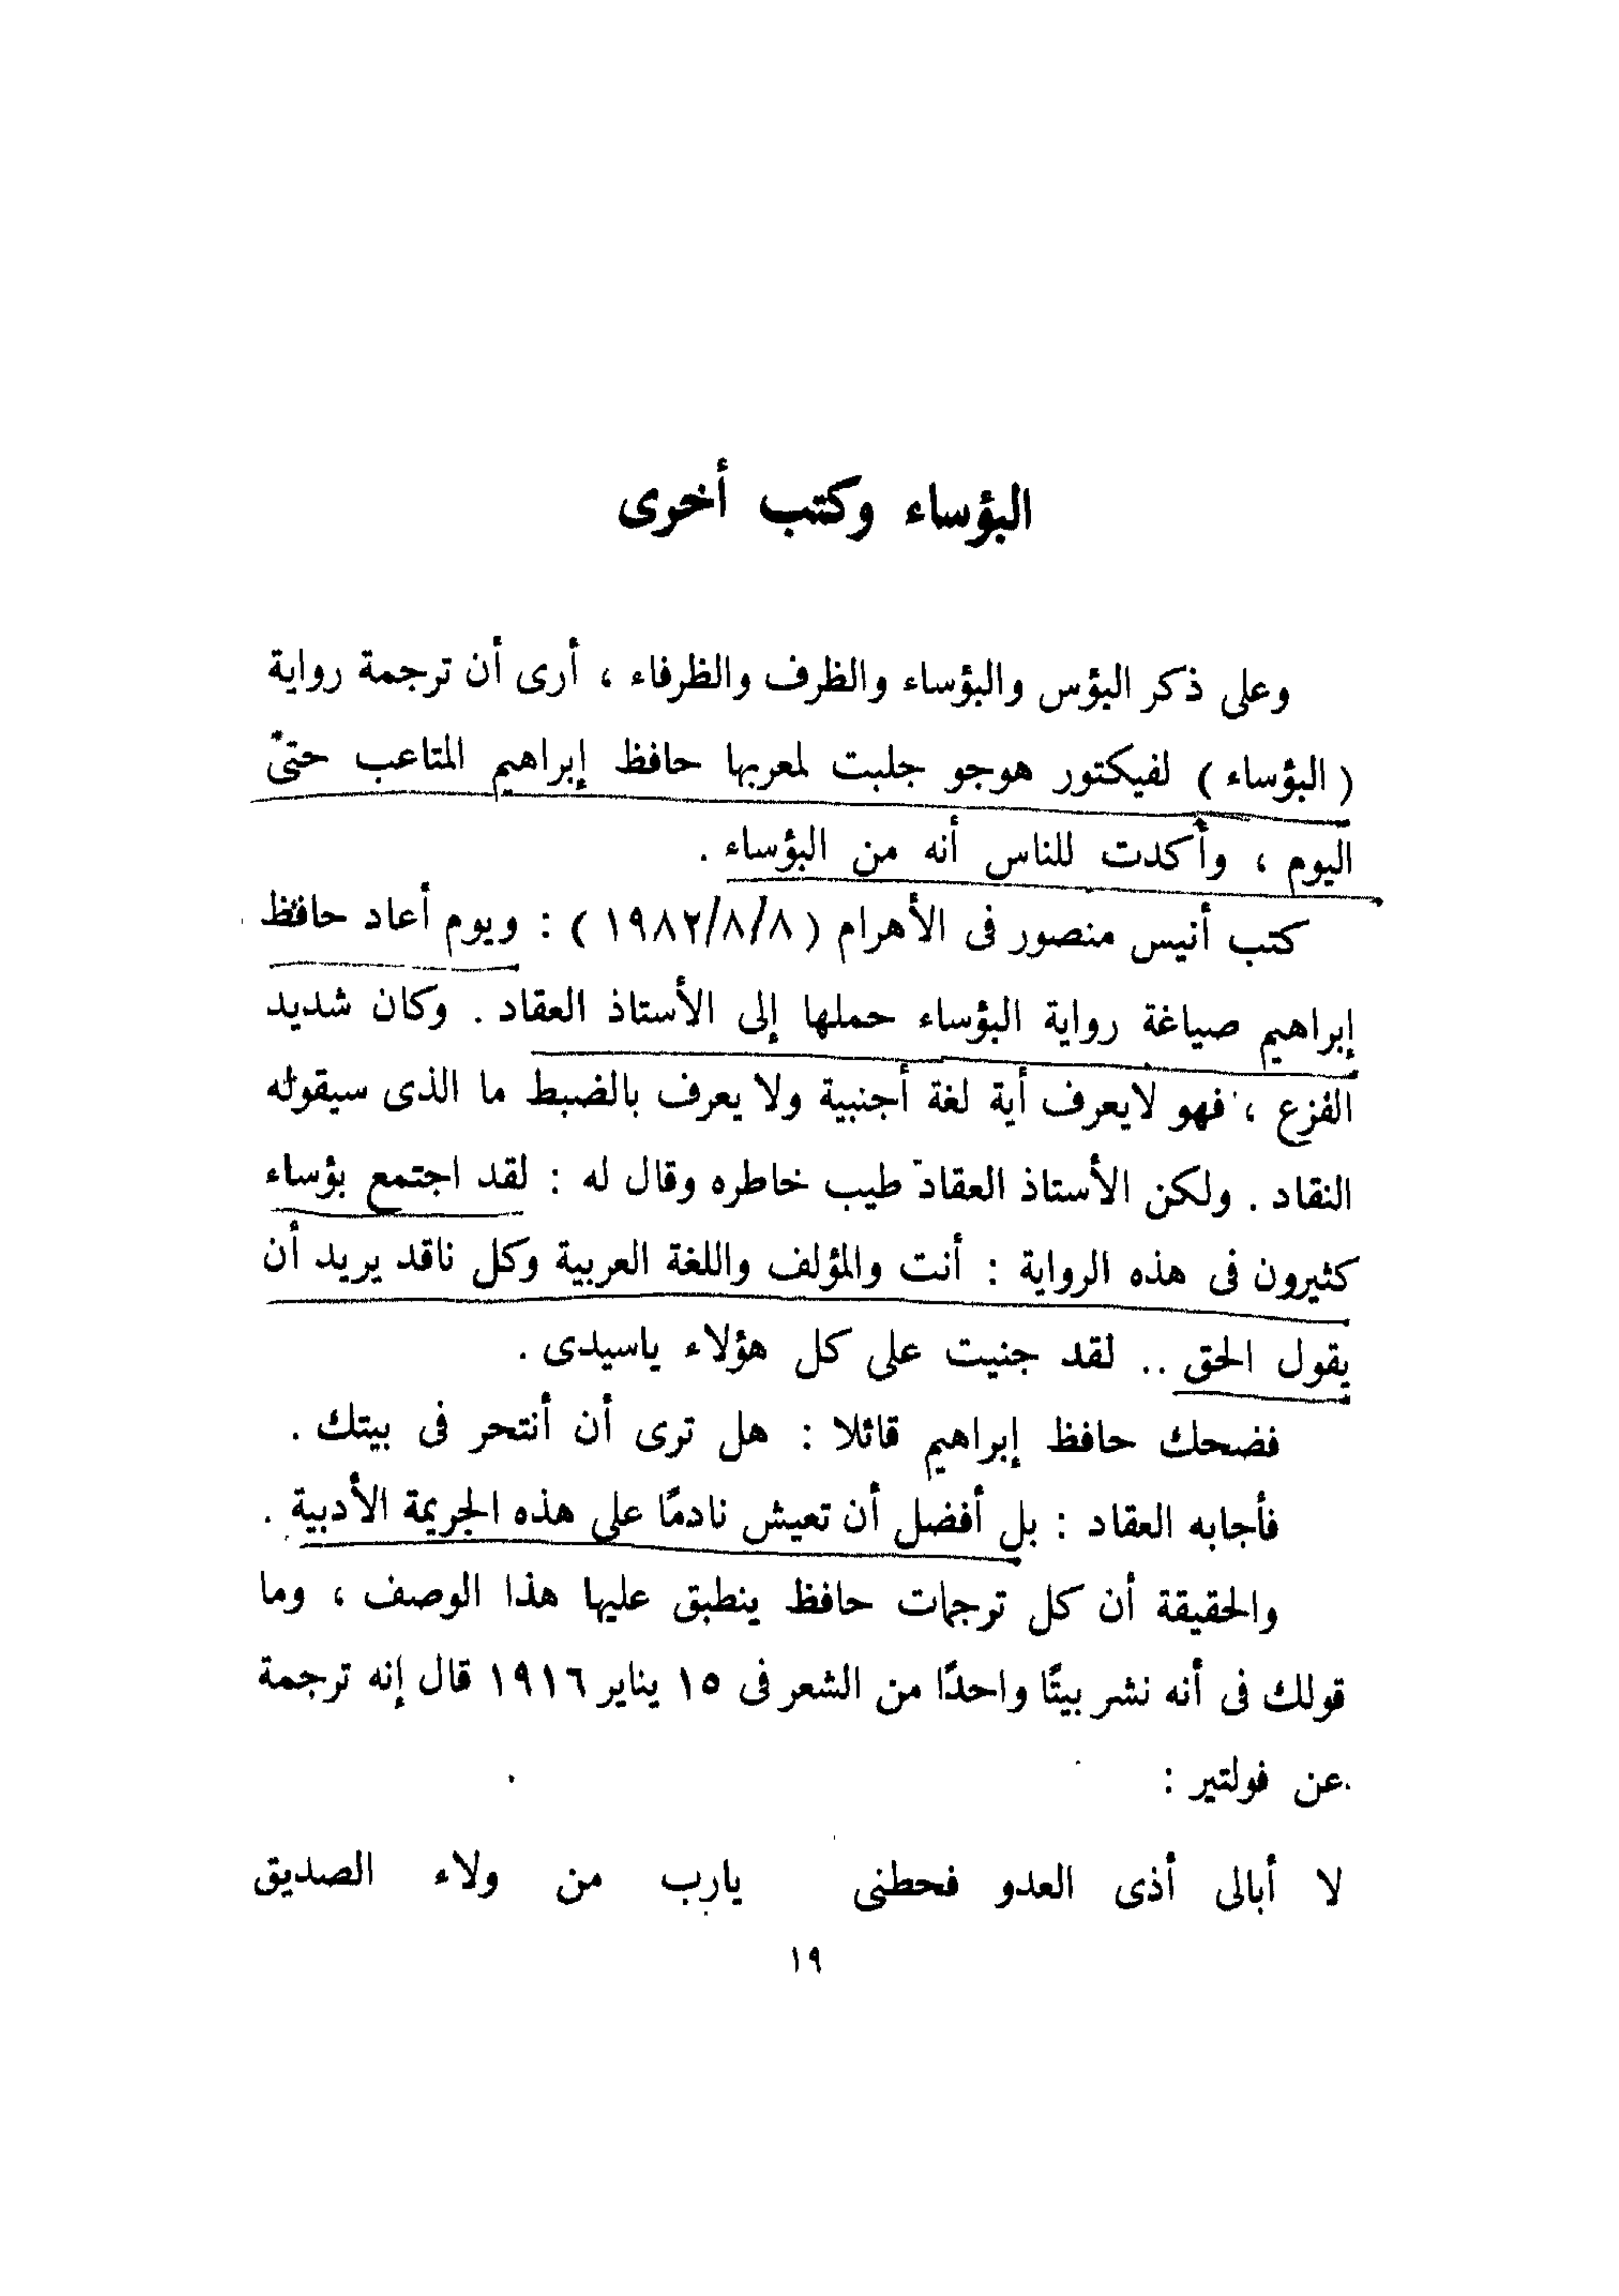 البؤساء وكتب أخرى
وعلى ذكر البؤس والبؤساء والظرف والظرفاء ، أرى أن ترجمة رواية
( البؤساء ) لفيكتور هوجو جلبت لمعربها حافظ إبراهيم المتاعب حتى
اليوم ، وأكدت للناس أنه من البؤساء .
كتب أنيس منصور فى الأهرام ( ١٩٨٢/٨/٨ ) : ويوم أعاد حافظ
إبراهيم صياغة رواية البؤساء حملها إلى الأستاذ العقاد . وكان شديد
الفزع ، فهو لايعرف أية لغة أجنبية ولا يعرف بالضبط ما الذى سيقوله
النقاد . ولكن الأستاذ العقاد طيب خاطره وقال له : لقد اجتمع بؤساء
كثيرون فى هذه الرواية : أنت والمؤلف واللغة العربية وكل ناقد يريد أن
يقول الحق .. لقد جنيت على كل هؤلاء ياسيدى .
فضحك حافظ إبراهيم قائلا : هل ترى أن أنتحر فى بيتك .
فأجابه العقاد : بل أفضل أن تعيش نادمًا على هذه الجريمة الأدبية .
والحقيقة أن كل ترجمات حافظ ينطبق عليها هذا الوصف ، وما
قولك فى أنه نشر بيتًا واحدًا من الشعر فى ١٥ يناير ١٩١٦ قال إنه ترجمة
عن فولتير :
لا أبالى أذى العدو فحطنى يارب من ولاء الصديق
١٩